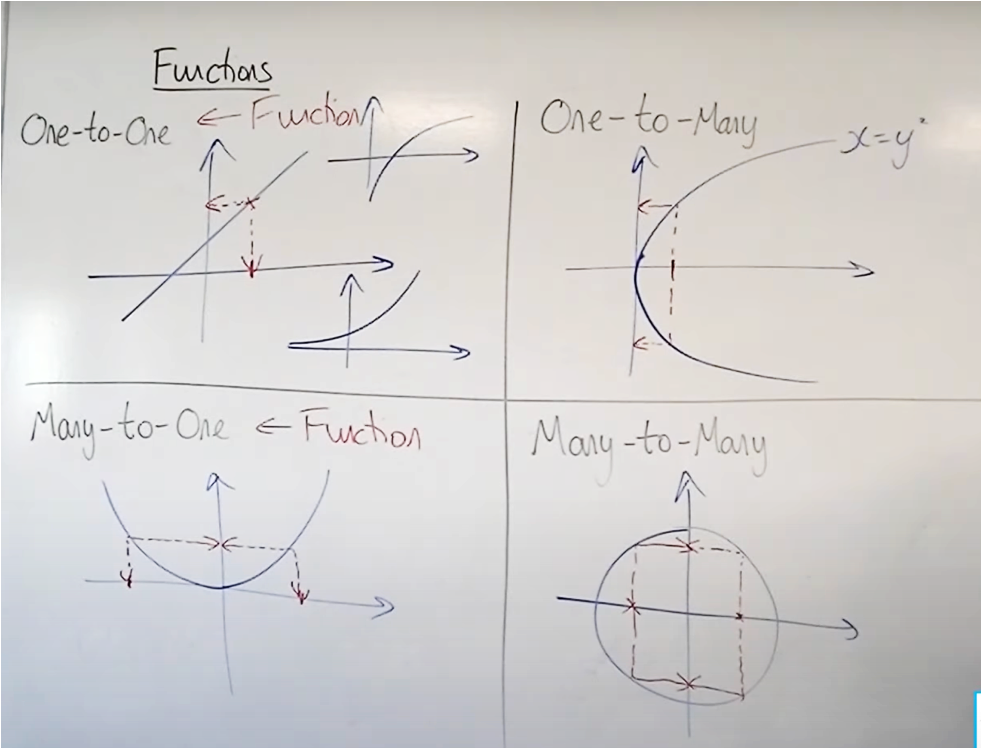 Functions
One-to-One ← Function
One-to-Many
x=y²
Many-to-One ← Function
Many-to-Many